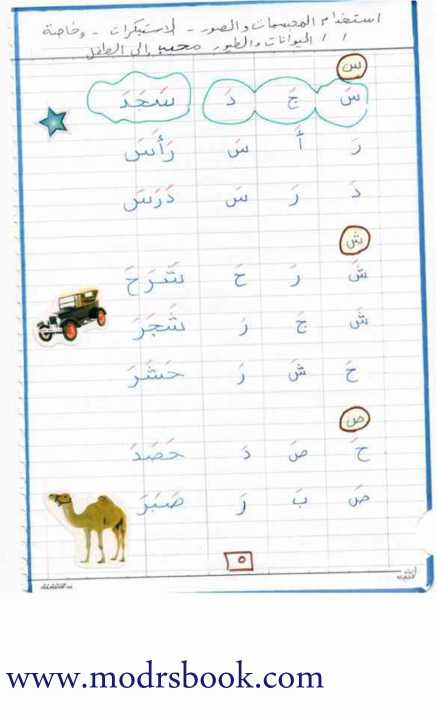 استخدام المجسمات والصور - لاستيكرات - وخاصة
الحيوانات والطيور محببه إلى الطفل
س
سَ جَ دَ سَجَدَ
رَ أَ سَ رَأَسَ
دَ رَ سَ دَرَسَ
ش
شَ رَ حَ شَرَحَ
شَ جَ رَ شَجَرَ
حَ شَ رَ حَشَرَ
ص
حَ صَ دَ حَصَدَ
صَ بَ رَ صَبَرَ
٥
www.modrsbook.com